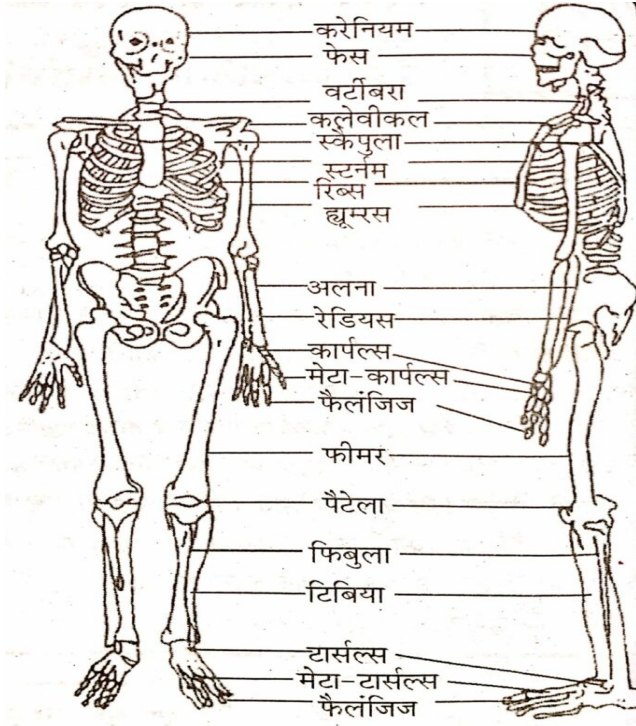 करेनियम
फेस
वर्टीबरा
कलेवीकल
स्कैपुला
स्टर्नम
रिब्स
ह्यूमरस
अलना
रेडियस
कार्पल्स
मेटा-कार्पल्स
फैलंजिज
फीमर
पैटेला
फिबुला
टिबिया
टार्सल्स
मेटा-टार्सल्स
फैलंजिज